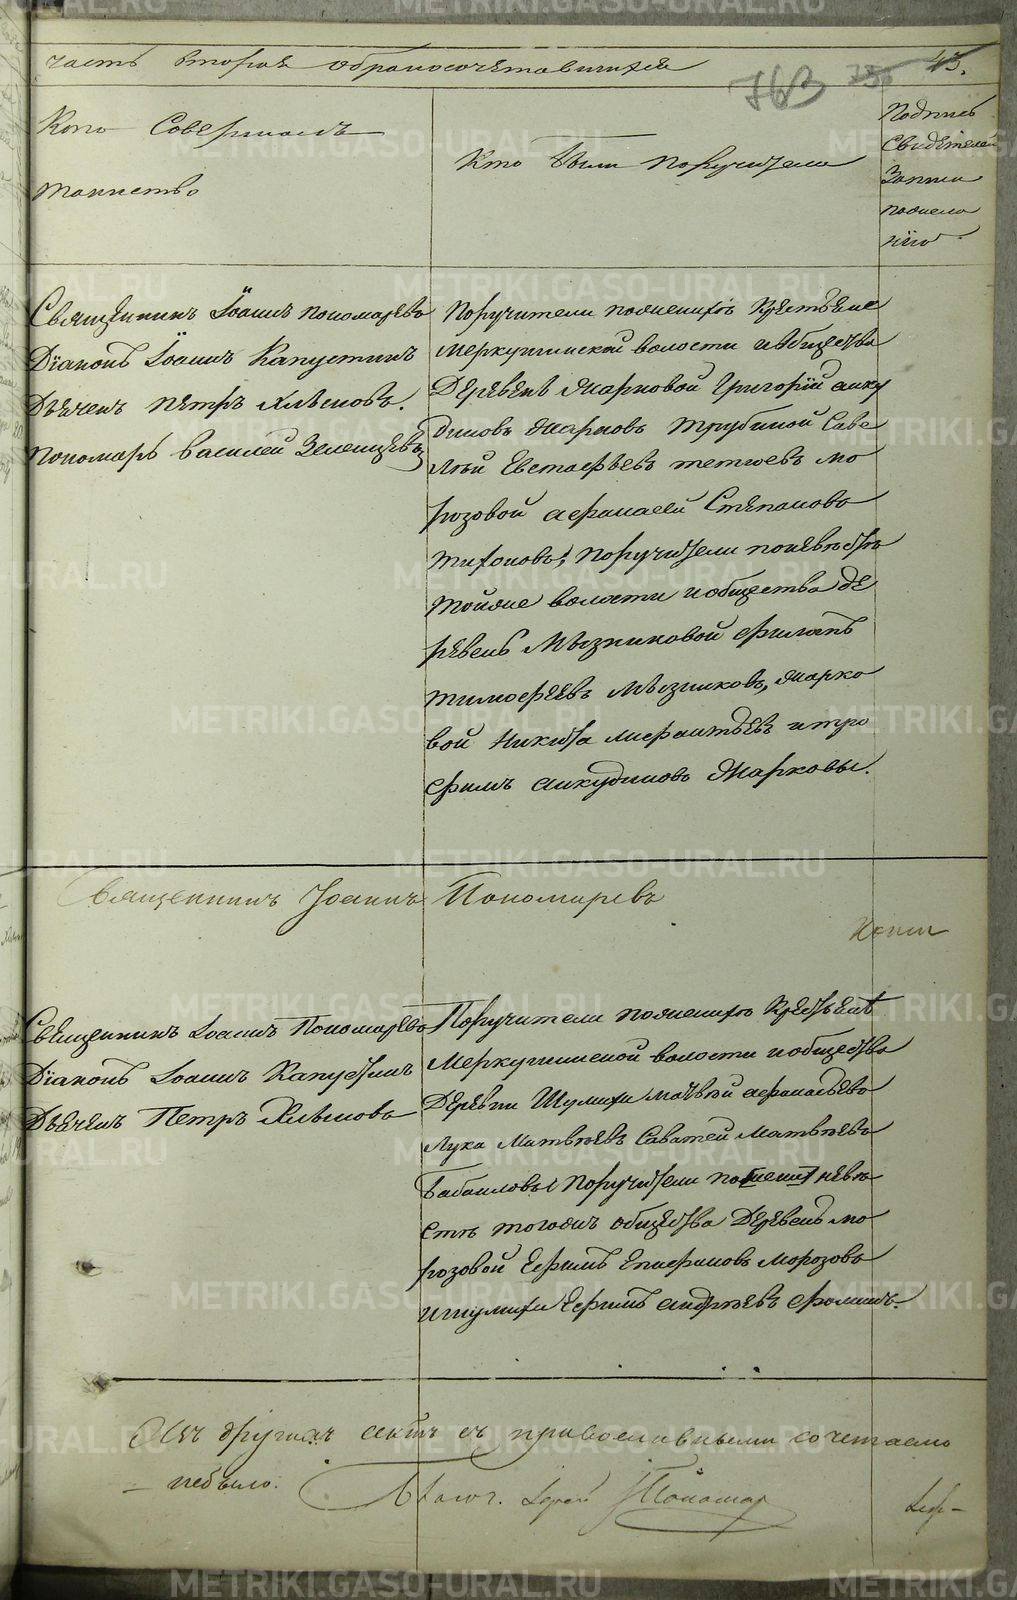 часть вторая обракосочетавшихся
763
43.
Кто Совершалъ
таинство
Кто были поручители
Подпись
Свидѣтелей
Записи
пожела
нію
Священникъ Іоаннъ пономаревъ
Діаконъ Іоаннъ Капустинъ
Дьячекъ Петръ Хлыновъ.
Пономарь Василей Зеленцевъ
Поручители поженихѣ Крестьяне
Меркушинской волости и общества
Деревень Жарковой Григорій анку
диновъ Жарковъ Трубиной Саве
лій Евстафьевъ тетюевъ мо
розовой афанасей Степановъ
Тихоновъ; Поручители поневѣстѣ
тойже волости и общества де
ревень Мызниковой филатъ
тимофеевъ Мызниковъ, Жарко
вой Никита лифантьевъ итро
фимъ анкудиновъ Жарковы.
Священникъ Іоаннъ Пономаревъ
Священникъ Іоаннъ Пономаревъ
Діаконъ Іоаннъ Капустинъ
Дьячекъ Петръ Хлыновъ
Поручители поженихѣ Крестьяне
Меркушинской волости и общества
Деревни Шумихи матвѣй афанасьевъ
Лука Матвѣевъ Саватей Матвѣевъ
Бабаиловы Поручители поневѣ
стѣ тогожъ общества Деревень мо
розовой Ефимъ Епифановъ Морозовъ
ишумихи Ефимъ андреевъ фоминъ.
Изъ другихъ сектъ съ православными сочетаемо
небыло.
Благоч. Іерей Пономар